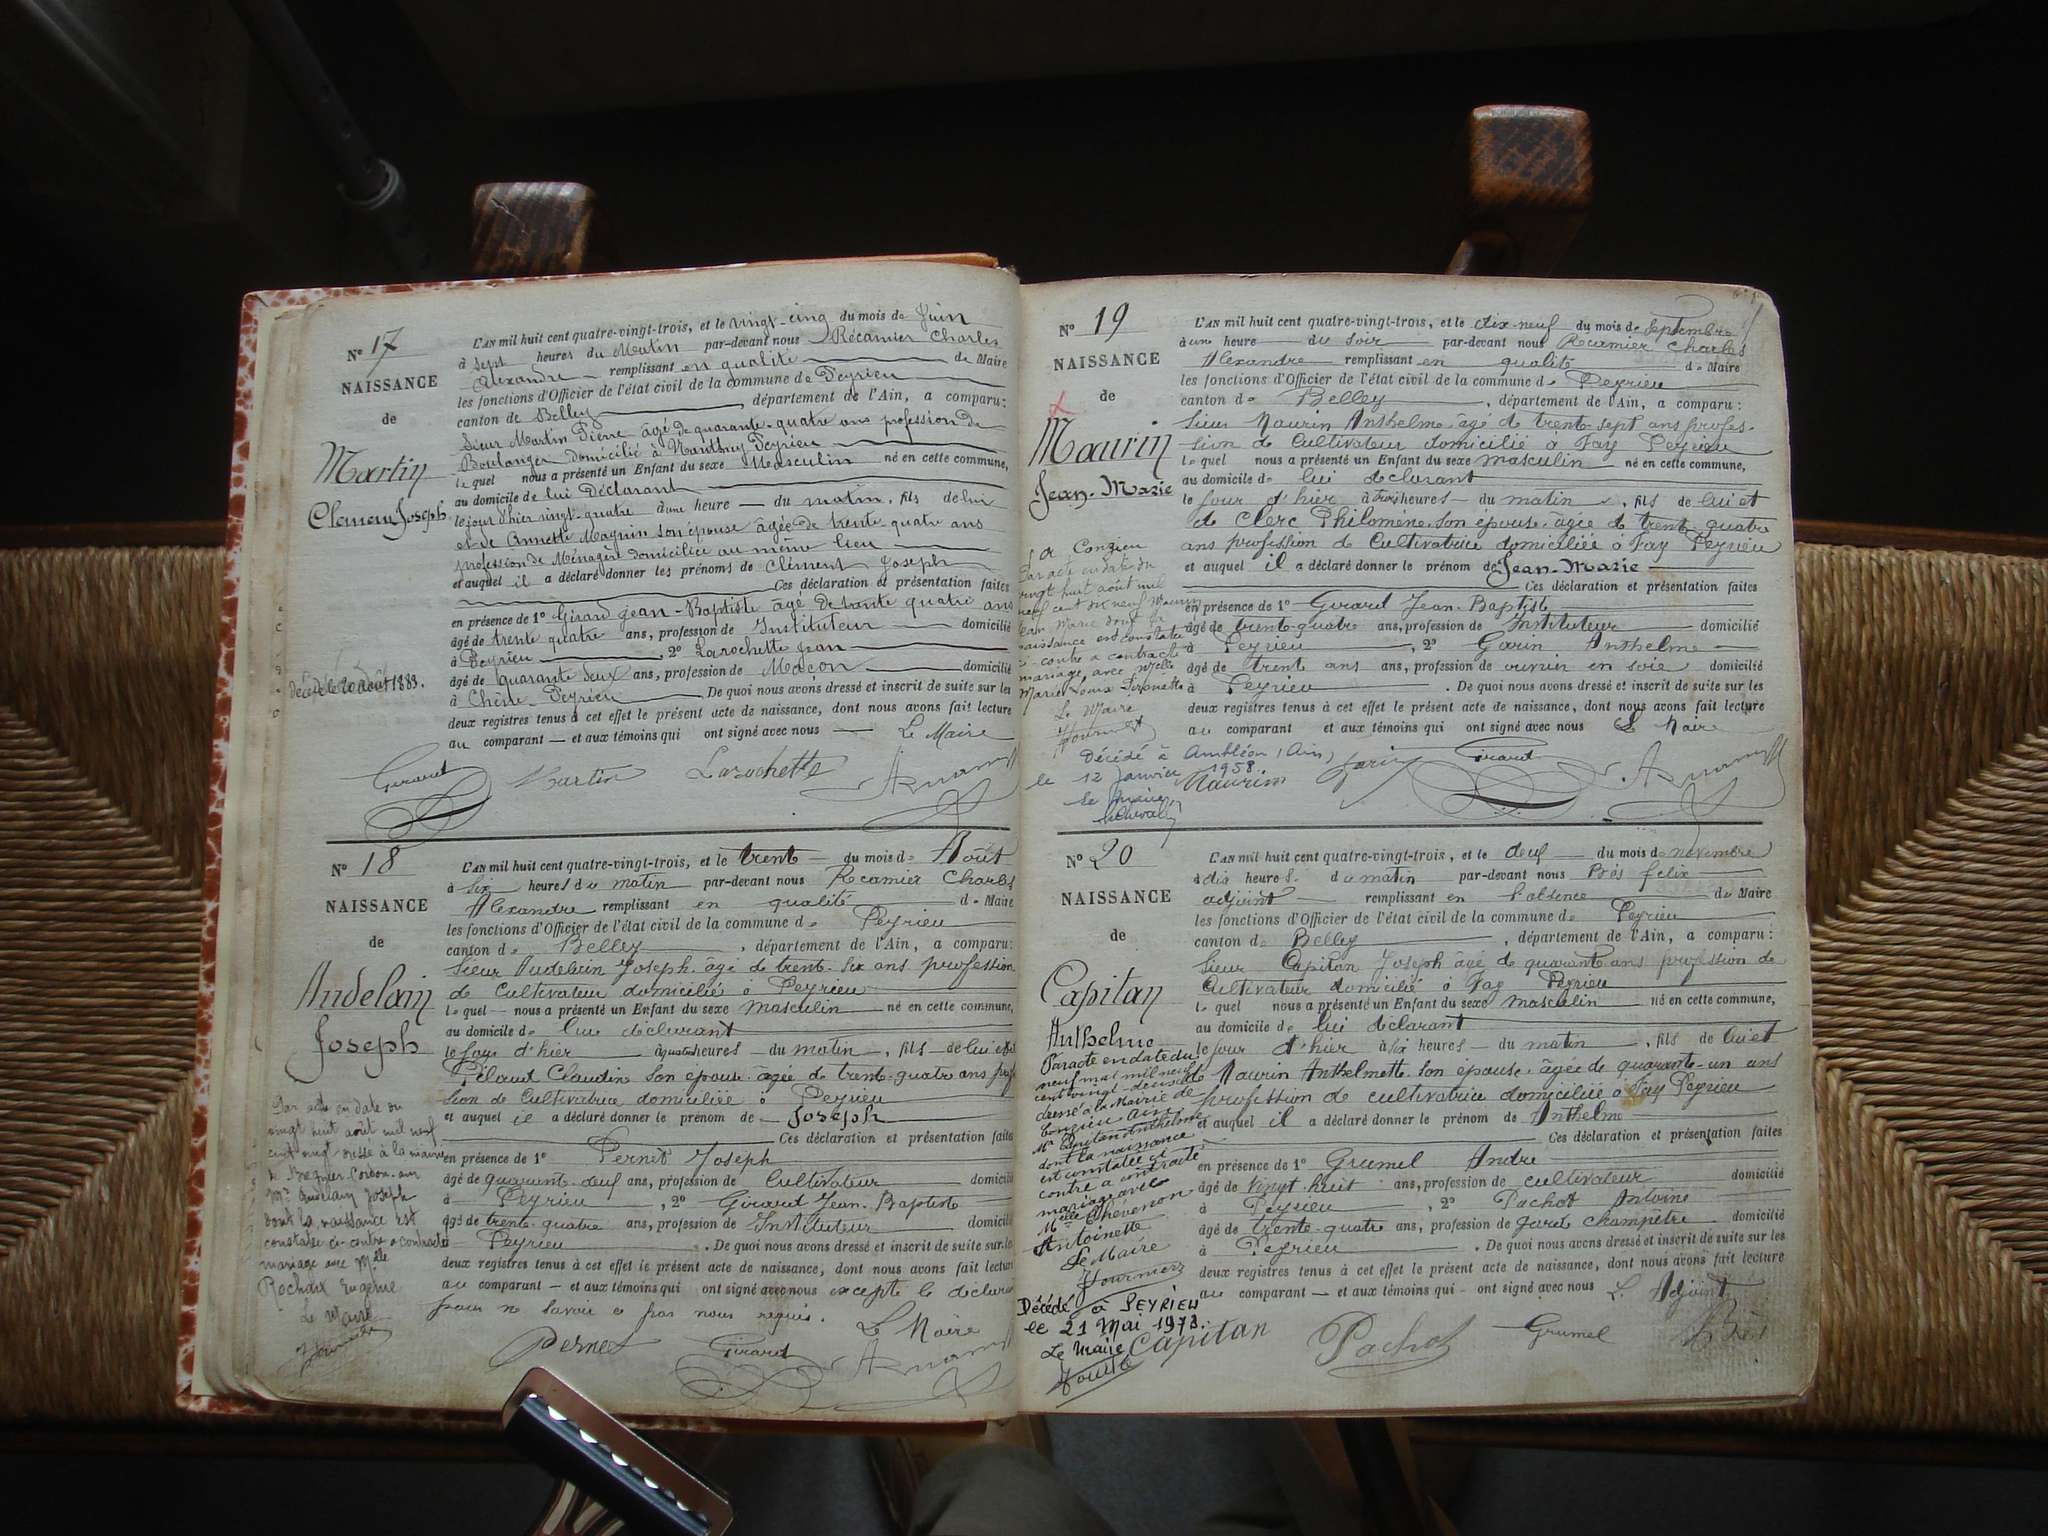 Nº 17
NAISSANCE
de
Martin
Clément Joseph
Décédé le 20 août 1883.
L'AN mil huit cent quatre-vingt-trois, et le vingt-cinq du mois de Juin
à sept heures du Matin par-devant nous Récamier Charles
Alexandre remplissant en qualité de Maire
les fonctions d'Officier de l'état civil de la commune de Peyrieu
canton de Belley, département de l'Ain, a comparu:
Sieur Martin Pierre âgé de quarante-quatre ans profession de
Boulanger domicilié à Peyrieu
le quel nous a présenté un Enfant du sexe Masculin né en cette commune,
au domicile de lui Déclarant
le jour d'hier vingt-quatre d'une heure du matin, fils de lui
et de Annette Magnin son épouse âgée de trente-quatre ans
profession de Ménagère domiciliée au même lieu
et auquel il a déclaré donner les prénoms de Clément Joseph
Ces déclaration et présentation faites
en présence de 1º Girard Jean-Baptiste âgé de trente quatre ans
âgé de trente quatre ans, profession de Instituteur domicilié
à Peyrieu, 2º Larochette Jean
âgé de quarante deux ans, profession de Maçon domicilié
à Chêne Peyrieu. De quoi nous avons dressé et inscrit de suite sur les
deux registres tenus à cet effet le présent acte de naissance, dont nous avons fait lecture
au comparant — et aux témoins qui ont signé avec nous — Le Maire
Girard Martin Larochette
Nº 18
NAISSANCE
de
Andelain
Joseph
Par acte en date du
vingt huit août mil neuf
cent vingt dressé à la mairie
de Brégnier-Cordon
Mr Andelain Joseph
dont la naissance est
constatée ci-contre a contracté
mariage avec Melle
Rochaix Eugénie
Le Maire
L'AN mil huit cent quatre-vingt-trois, et le trente du mois de Août
à six heures du matin par-devant nous Récamier Charles
Alexandre remplissant en qualité de Maire
les fonctions d'Officier de l'état civil de la commune de Peyrieu
canton de Belley, département de l'Ain, a comparu:
Sieur Andelain Joseph âgé de trente-six ans profession
de Cultivateur domicilié à Peyrieu
le quel — nous a présenté un Enfant du sexe masculin né en cette commune,
au domicile de lui déclarant
le jour d'hier à quatre heures — du matin, fils — de lui et de
Claudine son épouse âgée de trente-quatre ans profes-
sion de Cultivatrice domiciliée à Peyrieu
et auquel il a déclaré donner le prénom de Joseph
Ces déclaration et présentation faites
en présence de 1º Pernet Joseph
âgé de quarante-deuf ans, profession de Cultivateur domicilié
à Peyrieu, 2º Girard Jean-Baptiste
âgé de trente-quatre ans, profession de Instituteur domicilié
à Peyrieu. De quoi nous avons dressé et inscrit de suite sur les
deux registres tenus à cet effet le présent acte de naissance, dont nous avons fait lecture
au comparant — et aux témoins qui ont signé avec nous excepté le déclarant
pour ne savoir de par nous requis. Le Maire
Pernet Girard
Nº 19
NAISSANCE
de
Maurin
Jean-Marie
à Conzieu
Par acte en date du
vingt huit août mil
neuf cent dix neuf Maurin
Jean Marie dont la
naissance est constatée
ci-contre a contracté
mariage avec Melle
Marie Louise
Le Maire
Fournier
Décédé à Ambléon (Ain)
le 12 Janvier 1958.
Le Maire,
L'AN mil huit cent quatre-vingt-trois, et le dix-neuf du mois de Septembre
à une heure du soir par-devant nous Récamier Charles
Alexandre remplissant en qualité de Maire
les fonctions d'Officier de l'état civil de la commune de Peyrieu
canton de Belley, département de l'Ain, a comparu:
Sieur Maurin Anthelme âgé de trente-sept ans profes-
sion de Cultivateur domicilié à Fay Peyrieu
le quel nous a présenté un Enfant du sexe masculin né en cette commune,
au domicile de lui déclarant
le jour d'hier à trois heures — du matin, fils de lui et
de Clerc Philomène son épouse âgée de trente-quatre
ans profession de Cultivatrice domiciliée à Fay Peyrieu
et auquel il a déclaré donner le prénom de Jean-Marie
Ces déclaration et présentation faites
en présence de 1º Girard Jean-Baptiste
âgé de trente-quatre ans, profession de Instituteur domicilié
à Peyrieu, 2º Garin Anthelme
âgé de trente ans ans, profession de ouvrier en soie domicilié
à Peyrieu. De quoi nous avons dressé et inscrit de suite sur les
deux registres tenus à cet effet le présent acte de naissance, dont nous avons fait lecture
au comparant et aux témoins qui ont signé avec nous Le Maire
Maurin Garin Girard
Nº 20
NAISSANCE
de
Capitan
Anthelme
Par acte en date du
neuf mai mil neuf
cent vingt-deux
dressé à la Mairie de
Conzieu Ain
Mr Capitan Anthelme
dont la naissance
est constatée ci
contre a contracté
mariage avec
Melle Thévenon
Antoinette
Le Maire
Fournier
Décédé à PEYRIEU
le 21 Mai 1973.
Le Maire
L'AN mil huit cent quatre-vingt-trois, et le deuf du mois de novembre
à dix heures du matin par-devant nous Brès félix
adjoint remplissant en l'absence du Maire
les fonctions d'Officier de l'état civil de la commune de Peyrieu
canton de Belley, département de l'Ain, a comparu:
Sieur Capitan Joseph âgé de quarante ans profession de
Cultivateur domicilié à Fay Peyrieu
le quel nous a présenté un Enfant du sexe masculin né en cette commune,
au domicile de lui déclarant
le jour d'hier à six heures — du matin, fils de lui et
de Maurin Anthelmette son épouse âgée de quarante-un ans
profession de cultivatrice domiciliée à Fay Peyrieu
et auquel il a déclaré donner le prénom de Anthelme
Ces déclaration et présentation faites
en présence de 1º Grumel André
âgé de vingt-huit ans, profession de cultivateur domicilié
à Peyrieu, 2º Pachot Antoine
âgé de trente-quatre ans, profession de garde champêtre domicilié
à Peyrieu. De quoi nous avons dressé et inscrit de suite sur les
deux registres tenus à cet effet le présent acte de naissance, dont nous avons fait lecture
au comparant — et aux témoins qui - ont signé avec nous L'Adjoint
Capitan Pachot Grumel Brès